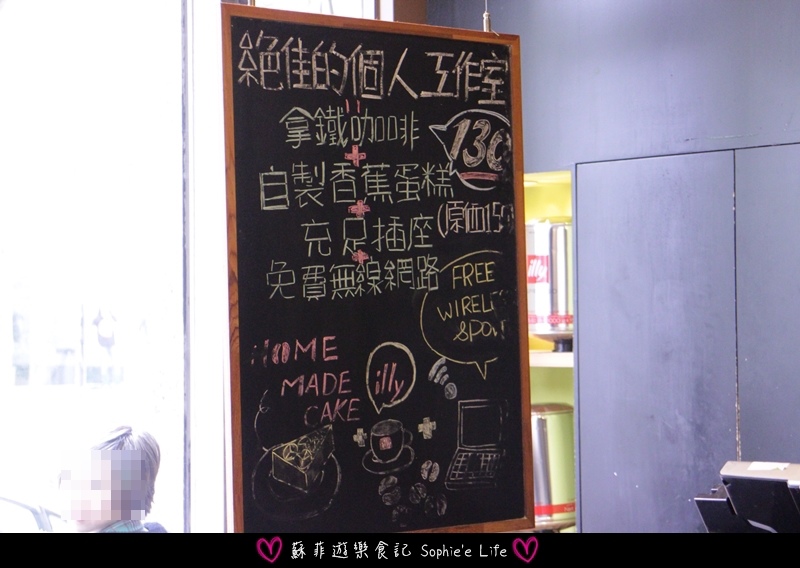 絕佳的個人工作室
拿鐵咖啡
130
+
自製香蕉蛋糕
+
(原価15
充足插座
+
免費無線網路
FREE
WIREL
SPO
HOME
MADE
CAKE
illy
+
+
illy
蘇菲遊樂食記 Sophie'e Life